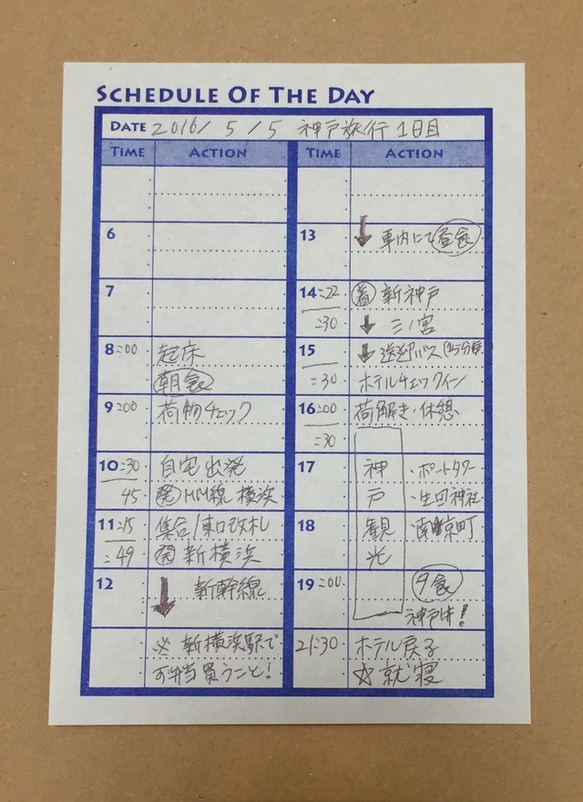 SCHEDULE OF THE DAY
DATE 2016 / 5 / 5 神戸旅行 1日目
TIME ACTION
6
7
8:00 起床
朝食
9:00 荷物チェック
10:30 自宅出発
45 発 MM線 横浜
11:15 集合/東口改札
:49 発 新横浜
12 ↓ 新幹線
※ 新横浜駅で
お弁当買うこと!
TIME ACTION
13 ↓ 車内にて昼食
14:22 着 新神戸
:30 ↓ 三ノ宮
15 ↓ 送迎バス (15分
:30 ホテルチェックイン
16:00 荷解き・休憩
:30
17 神 ・ポートタワー
戸 ・生田神社
18 観 ・南京町
光
19:00 夕食
神戸牛!
21:30 ホテル戻る
☆就寝